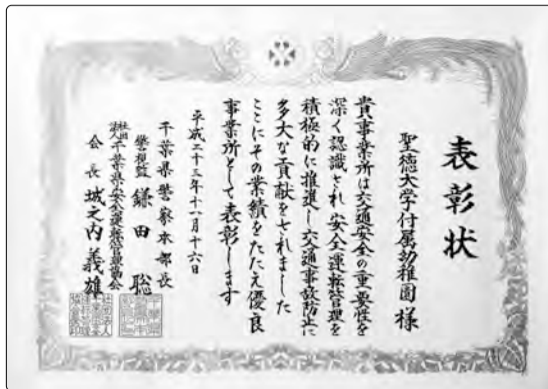 表彰状
聖徳大学付属幼稚園 様
貴事業所は交通安全の重要性を
深く認識され安全運転管理を
積極的に推進し交通事故防止に
多大な貢献をされました
ここにその業績をたたえ優良
事業所として表彰します
平成二十三年十一月十六日
千葉県警察本部長
警視監 鎌田 聡
千葉県安全運転管理協会
会長 城之内義雄